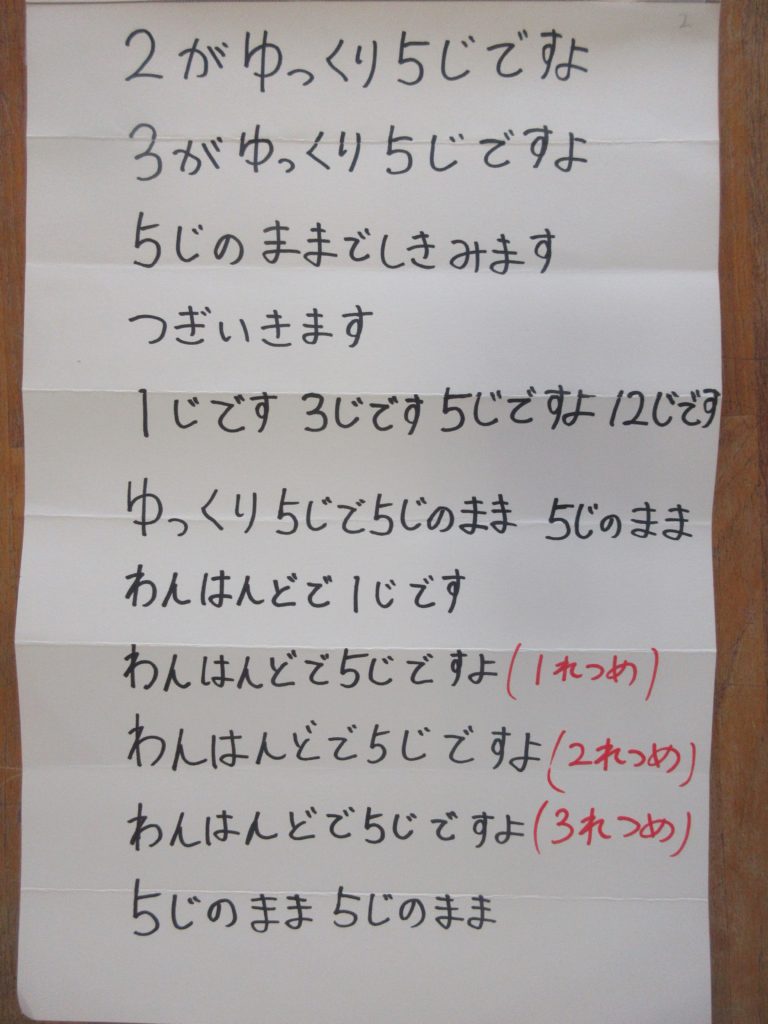 2
2がゆっくり5じですよ
3がゆっくり5じですよ
5じのままでしきみます
つぎいきます
1じです 3じです 5じですよ 12じです
ゆっくり5じで5じのまま 5じのまま
わんはんどで1じです
わんはんどで5じですよ(1れつめ)
わんはんどで5じですよ(2れつめ)
わんはんどで5じですよ(3れつめ)
5じのまま 5じのまま